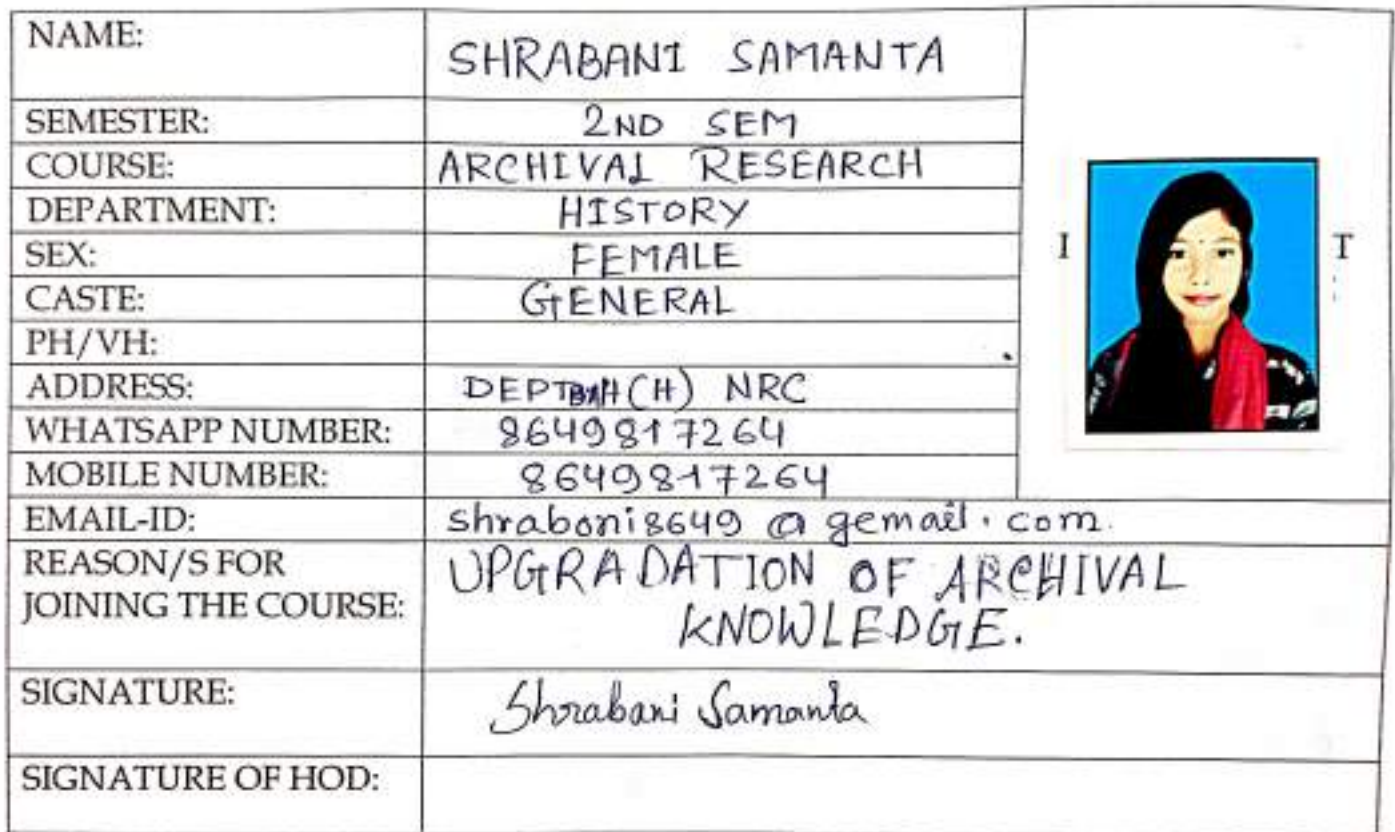 NAME: SHRABANI SAMANTA
SEMESTER: 2ND SEM
COURSE: ARCHIVAL RESEARCH
DEPARTMENT: HISTORY
SEX: FEMALE
I T
CASTE: GENERAL
PH/VH:
ADDRESS: (H) NRC
WHATSAPP NUMBER: 8649817264
MOBILE NUMBER: 8649817264
EMAIL-ID: shraboni8649 @ gemail. com.
REASON/S FOR UPGRADATION OF ARCHIVAL
JOINING THE COURSE: KNOWLEDGE.
SIGNATURE: Shrabani Samanta
SIGNATURE OF HOD: